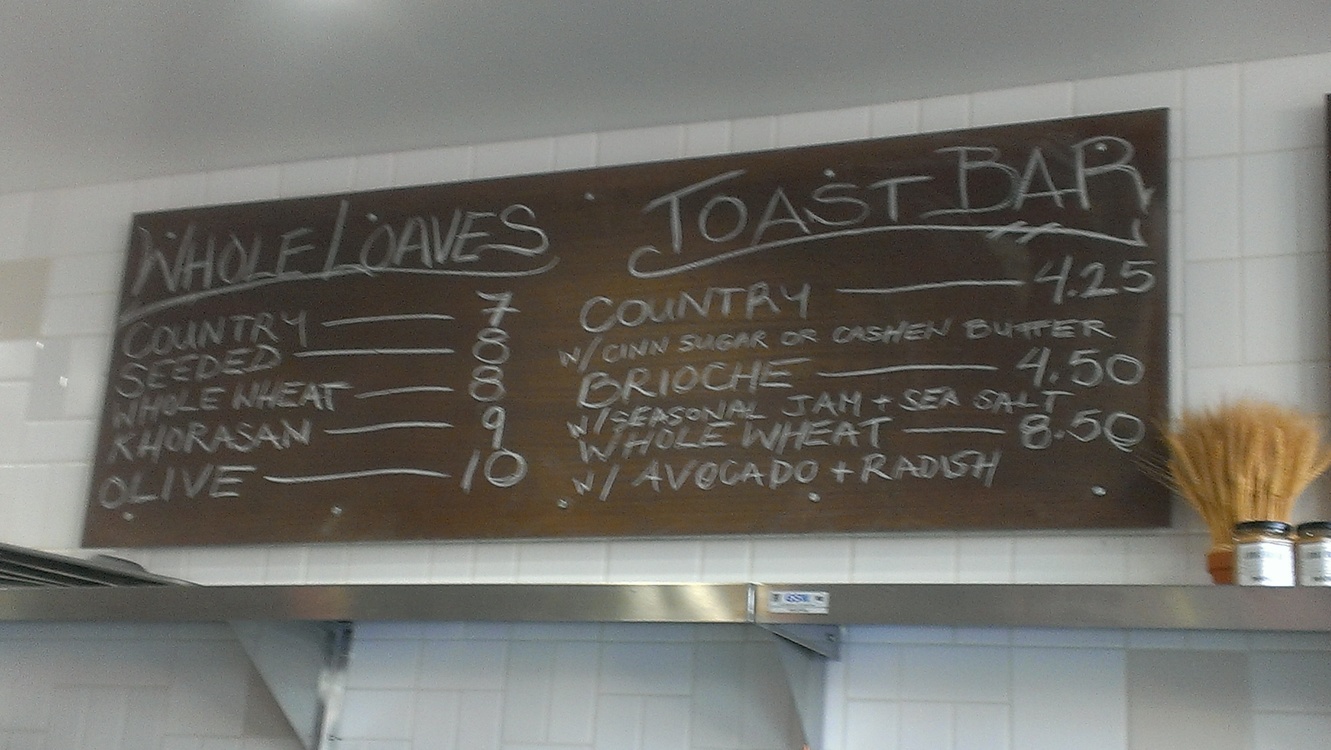 WHOLE LOAVES
COUNTRY 7
SEEDED 8
WHOLE WHEAT 8
KHORASAN 9
OLIVE 10
TOAST BAR
COUNTRY 4.25
W/CINN SUGAR OR CASHEW BUTTER
BRIOCHE 4.50
W/SEASONAL JAM + SEA SALT
WHOLE WHEAT 8.50
W/ AVOCADO + RADISH